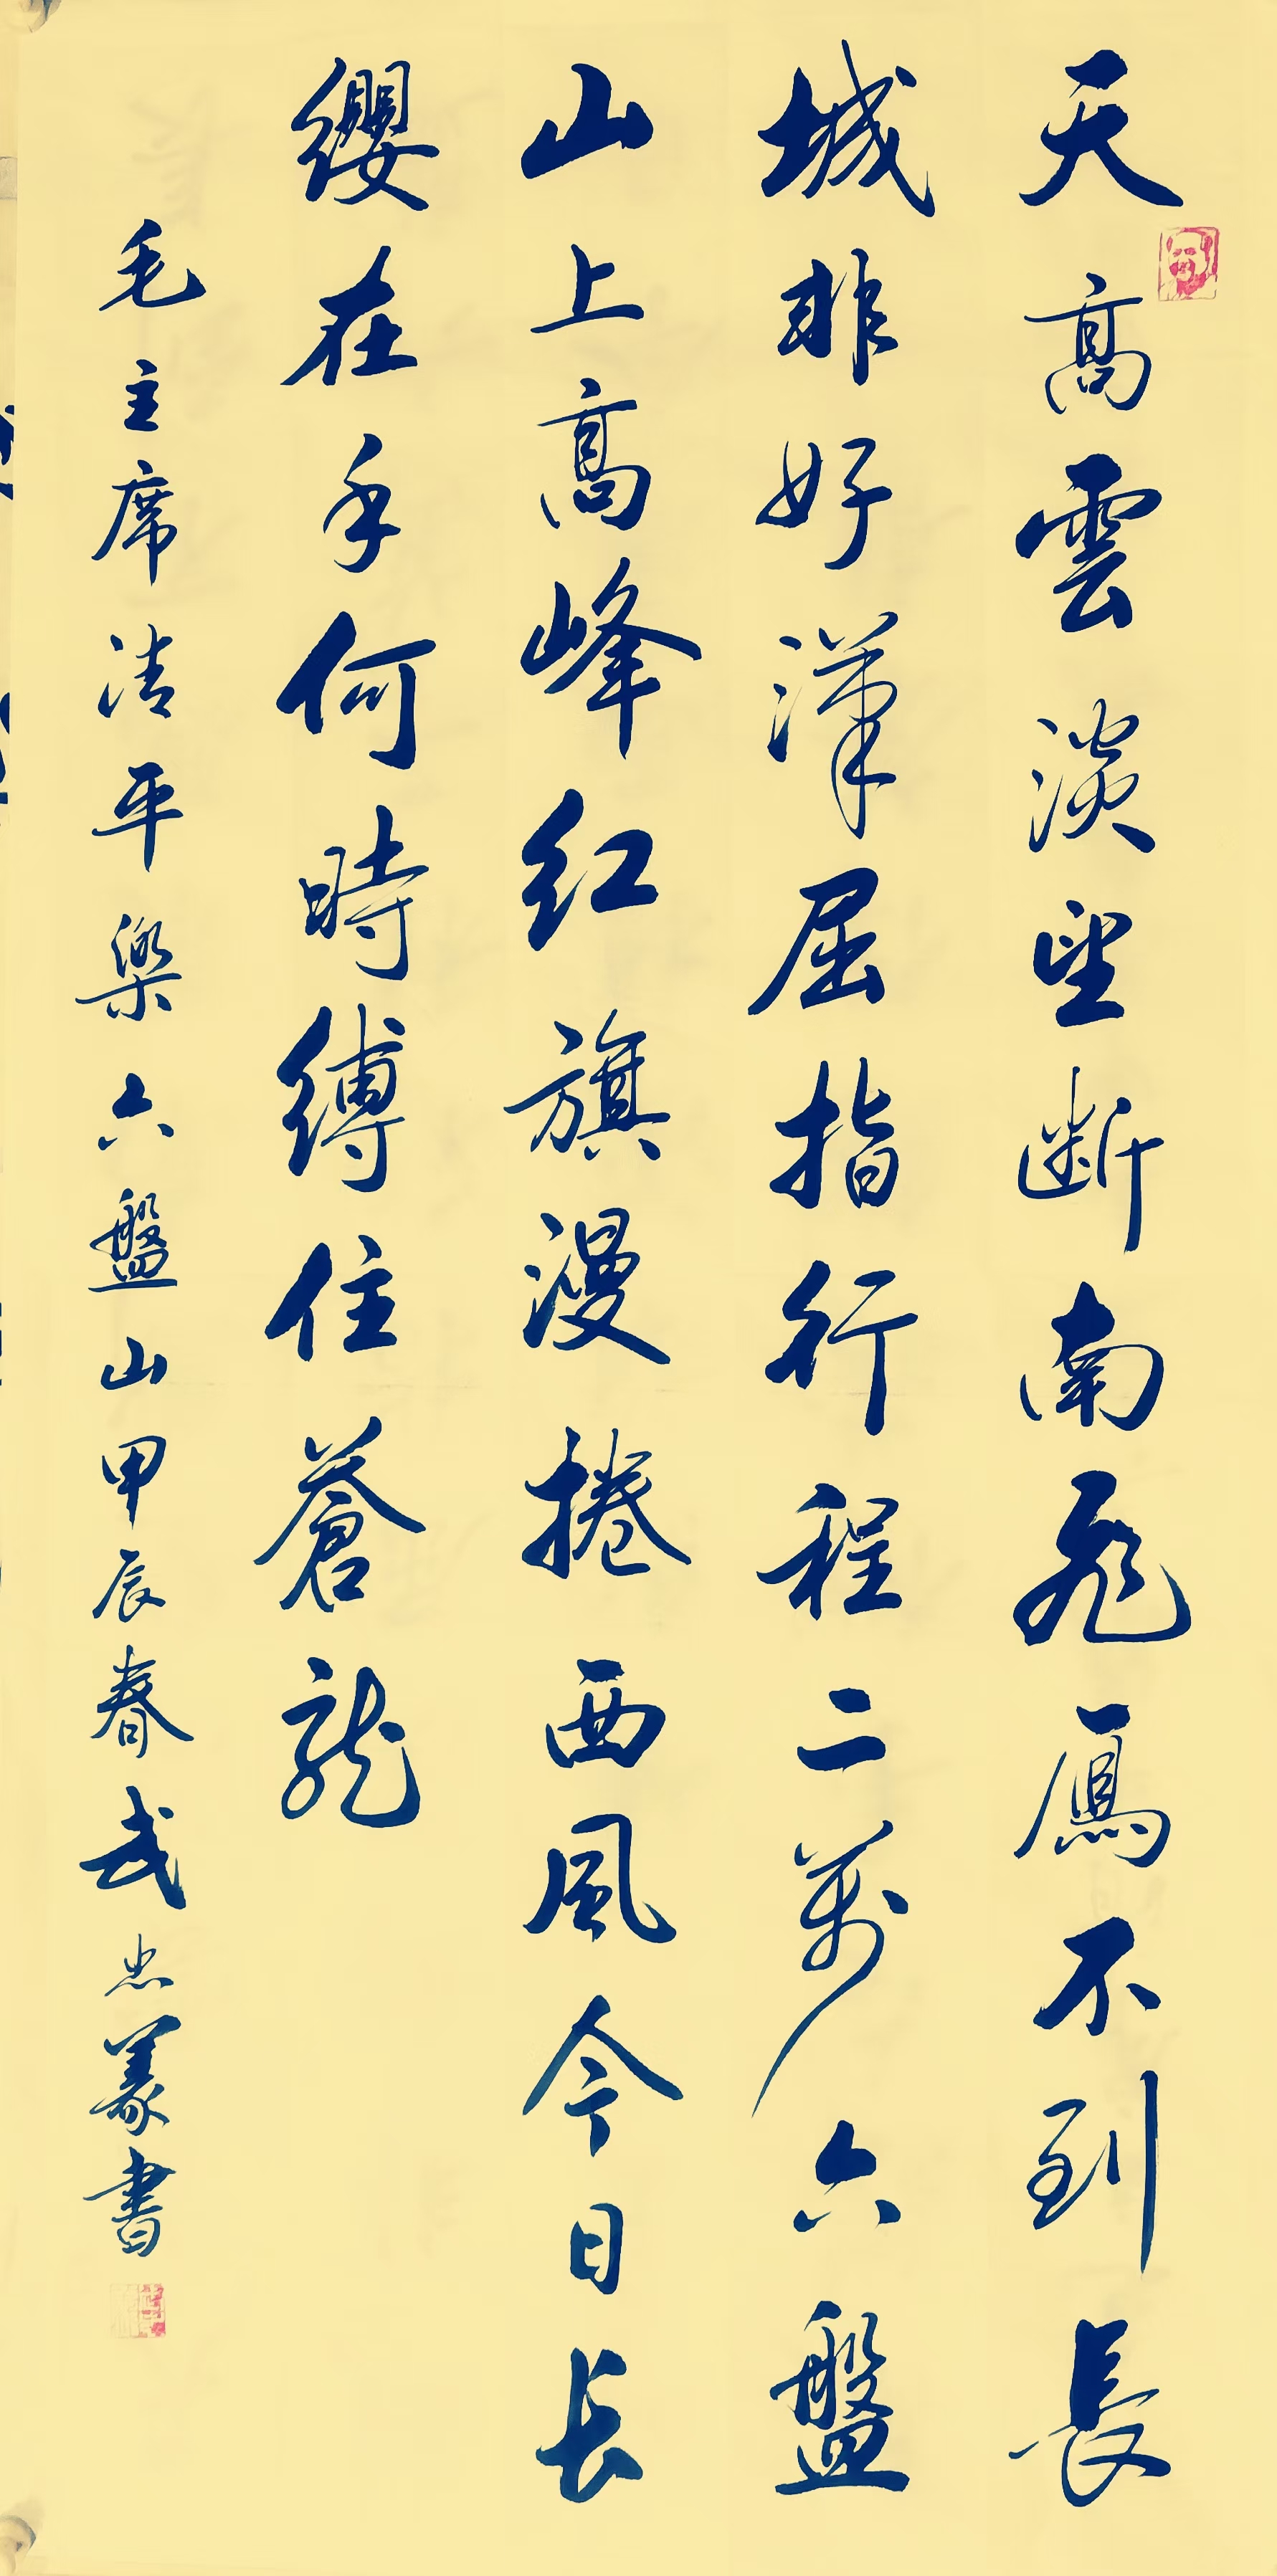 天高雲淡望断南飛鴈不到長
城非好漢屈指行程二萬六盤
山上高峰红旗漫捲西風今日长
纓在手何時縛住蒼龍
毛主席清平樂六盤山甲辰春武忠義書